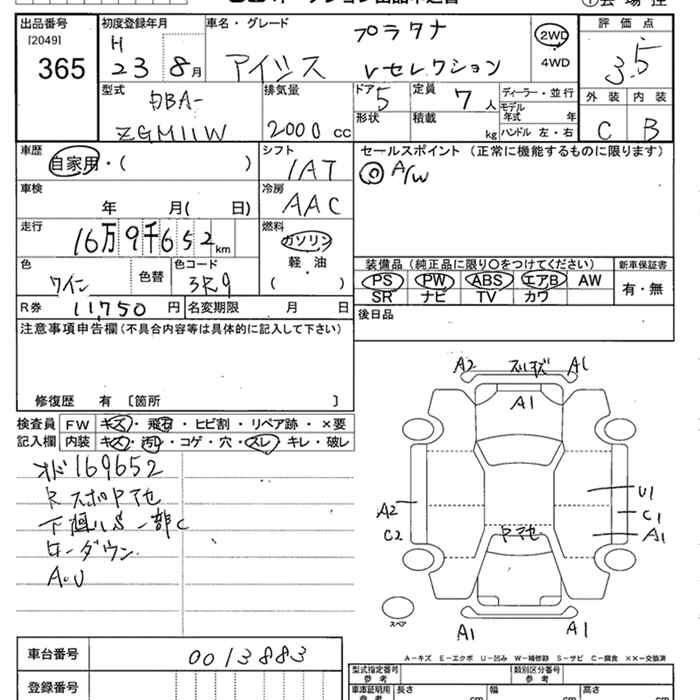 出品番号
[2049]
365
初度登録年月
H
23 8月
車名・グレード
プラタナ
アイシス Vセレクション
2WD
4WD
評価点
3.5
外装 内装
C B
型式
DBA-
ZGM11W
排気量
2000 cc
ドア
5
形状
定員 7 人
積載 kg
ディーラー・並行
モデル年式 年
ハンドル 左・右
車歴
自家用・( )
シフト
IAT
セールスポイント(正常に機能するものに限ります)
◎ A/W
車検
年 月( 日)
冷房
AAC
走行
16万9千652km
燃料
ガソリン
軽・油
( )
色
ワイン
色替
色コード
3R9
装備品(純正品に限り○をつけてください)
PS PW ABS エアB AW
SR ナビ TV カワ
新車保証書
有・無
R券 11,750円
名変期限 月 日
後日品
注意事項申告欄(不具合内容等は具体的に記入して下さい)
修復歴 有 〔箇所 〕
検査員
記入欄
FW キズ・飛石・ヒビ割・リペア跡・×要
内装 キズ・汚れ・コゲ・穴・スレ・キレ・破レ
オド169652
Rスポヤマセ
下廻りS一部C
ローダウン
A.U
A2 A1
A1
A2
C2
U1
C1
A1
ヤマセ
A1 A1
スペア
A-キズ E-エクボ U-凹み W-補修跡 S-サビ C-腐食 ××-交換済
車台番号 0013883
登録番号
型式指定番号
参考
類別区分番号
参考
車庫証明用
参考
長さ cm
幅 cm
高さ cm